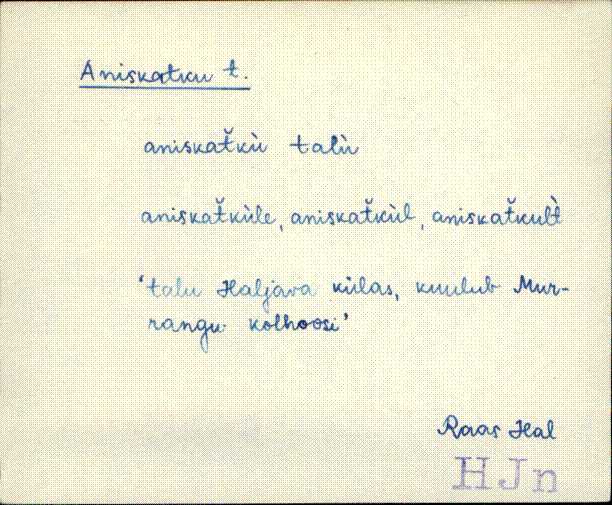 Aniskatku t.
aniskat̆kù talù
aniskat̆kùle, aniskat̆kùl, aniskat̆kult̀
'talu Haljava külas, kuulub Mur-
rangu kolhoosi'
Raas Hal
HJn